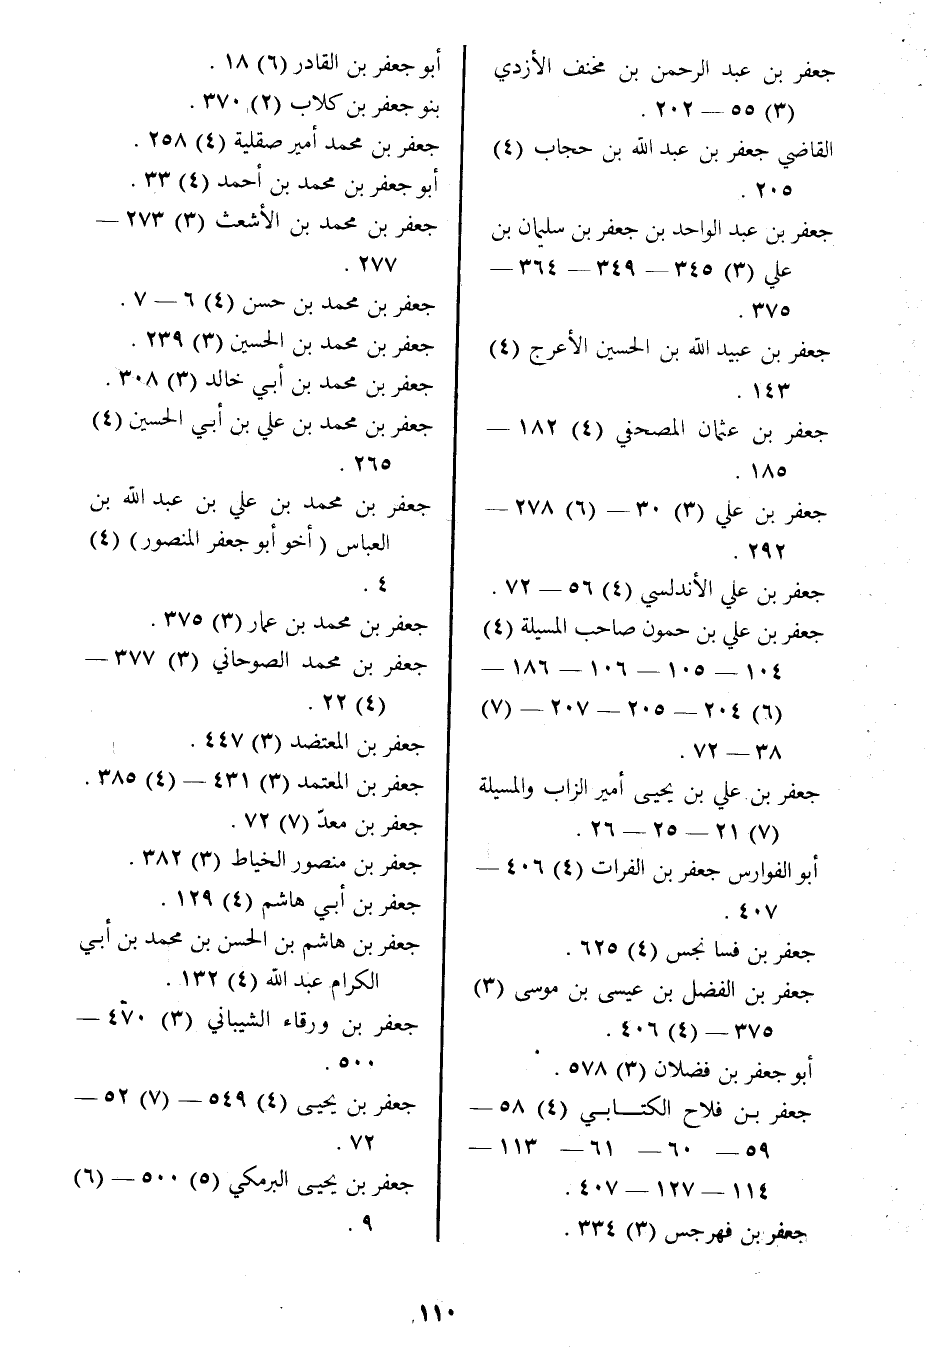 جعفر بن عبد الرحمن بن مخنف الأزدي
(٣) ٥٥ — ٢٠٢ .
القاضي جعفر بن عبد الله بن حجاب (٤)
٢٠٥ .
جعفر بن عبد الواحد بن جعفر بن سليمان بن
علي (٣) ٣٤٥ — ٣٤٩ — ٣٦٤ —
٣٧٥ .
جعفر بن عبيد الله بن الحسين الأعرج (٤)
١٤٣ .
جعفر بن عثمان المصحفي (٤) ١٨٢ —
١٨٥ .
جعفر بن علي (٣) ٣٠ — (٦) ٢٧٨ —
٢٩٢ .
جعفر بن علي الأندلسي (٤) ٥٦ — ٧٢ .
جعفر بن علي بن حمون صاحب المسيلة (٤)
١٠٤ — ١٠٥ — ١٠٦ — ١٨٦ —
(٦) ٢٠٤ — ٢٠٥ — ٢٠٧ — (٧)
٣٨ — ٧٢ .
جعفر بن علي بن يحيى أمير الزاب والمسيلة
(٧) ٢١ — ٢٥ — ٢٦ .
أبو الفوارس جعفر بن الفرات (٤) ٤٠٦ —
٤٠٧ .
جعفر بن فسا نجس (٤) ٦٢٥ .
جعفر بن الفضل بن عيسى بن موسى (٣)
٣٧٥ — (٤) ٤٠٦ .
أبو جعفر بن فضلان (٣) ٥٧٨ .
جعفر بن فلاح الكتابي (٤) ٥٨ —
٥٩ — ٦٠ — ٦١ — ١١٣ —
١١٤ — ١٢٧ — ٤٠٧ .
جعفر بن فهرجس (٣) ٣٣٤ .
أبو جعفر بن القادر (٦) ١٨ .
بنو جعفر بن كلاب (٢) ٣٧٠ .
جعفر بن محمد أمير صقلية (٤) ٢٥٨ .
أبو جعفر بن محمد بن أحمد (٤) ٣٣ .
جعفر بن محمد بن الأشعث (٣) ٢٧٣ —
٢٧٧ .
جعفر بن محمد بن حسن (٤) ٦ — ٧ .
جعفر بن محمد بن الحسين (٣) ٢٣٩ .
جعفر بن محمد بن أبي خالد (٣) ٣٠٨ .
جعفر بن محمد بن علي بن أبي الحسين (٤)
٢٦٥ .
جعفر بن محمد بن علي بن عبد الله بن
العباس ( أخو أبو جعفر المنصور ) (٤)
٤ .
جعفر بن محمد بن عمار (٣) ٣٧٥ .
جعفر بن محمد الصوحاني (٣) ٣٧٧ —
(٤) ٢٢ .
جعفر بن المعتضد (٣) ٤٤٧ .
جعفر بن المعتمد (٣) ٤٣١ — (٤) ٣٨٥ .
جعفر بن معدّ (٧) ٧٢ .
جعفر بن منصور الخياط (٣) ٣٨٢ .
جعفر بن أبي هاشم (٤) ١٢٩ .
جعفر بن هاشم بن الحسن بن محمد بن أبي
الكرام عبد الله (٤) ١٣٢ .
جعفر بن ورقاء الشيباني (٣) ٤٧٠ —
٥٠٠ .
جعفر بن يحيى (٤) ٥٤٩ — (٧) ٥٢ —
٧٢ .
جعفر بن يحيى البرمكي (٥) ٥٠٠ — (٦)
٩ .
١١٠